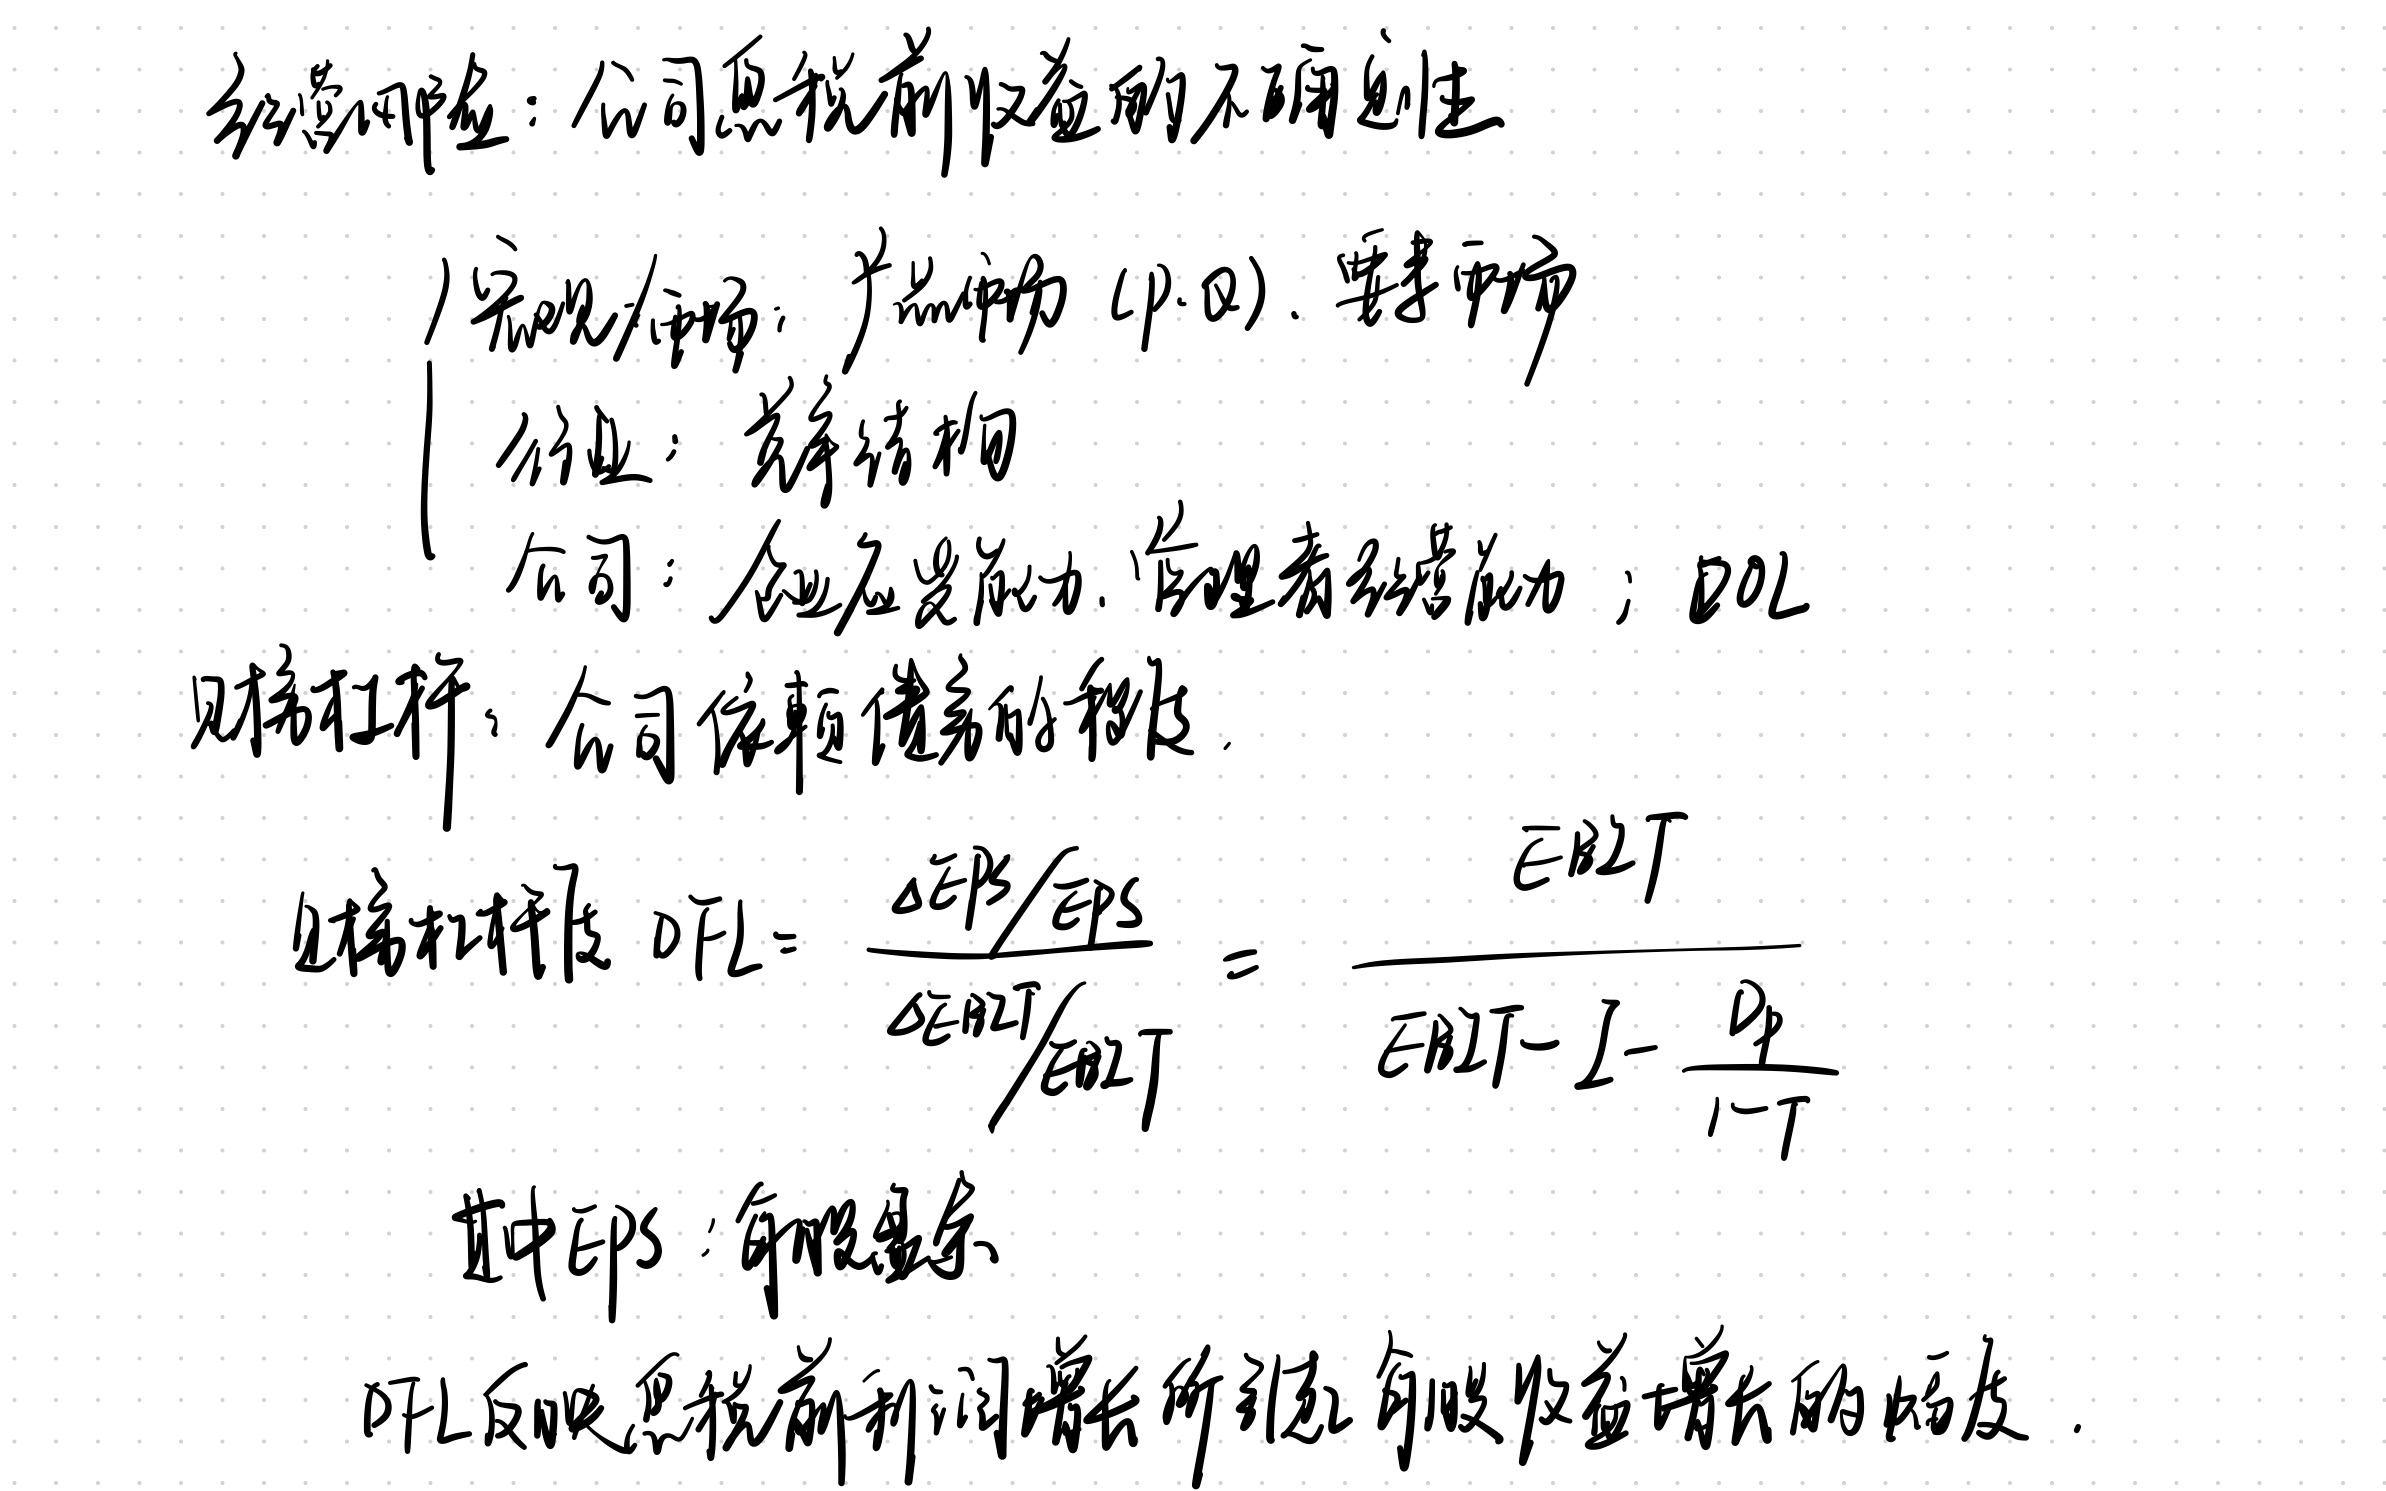 经营风险：公司息税前收益的不确定性
宏观/市场：产品价格（P.Q）、要素市场
行业：竞争结构
公司：企业应变能力、管理者经营能力；DOL
财务杠杆：公司依赖债务的程度.
财务杠杆度 DFL = (ΔEPS/EPS)/(ΔEBIT/EBIT) = EBIT/(EBIT-I-Dp/(1-T))
其中EPS：每股盈余
DFL反映息税前利润增长所引起每股收益增长的幅度.